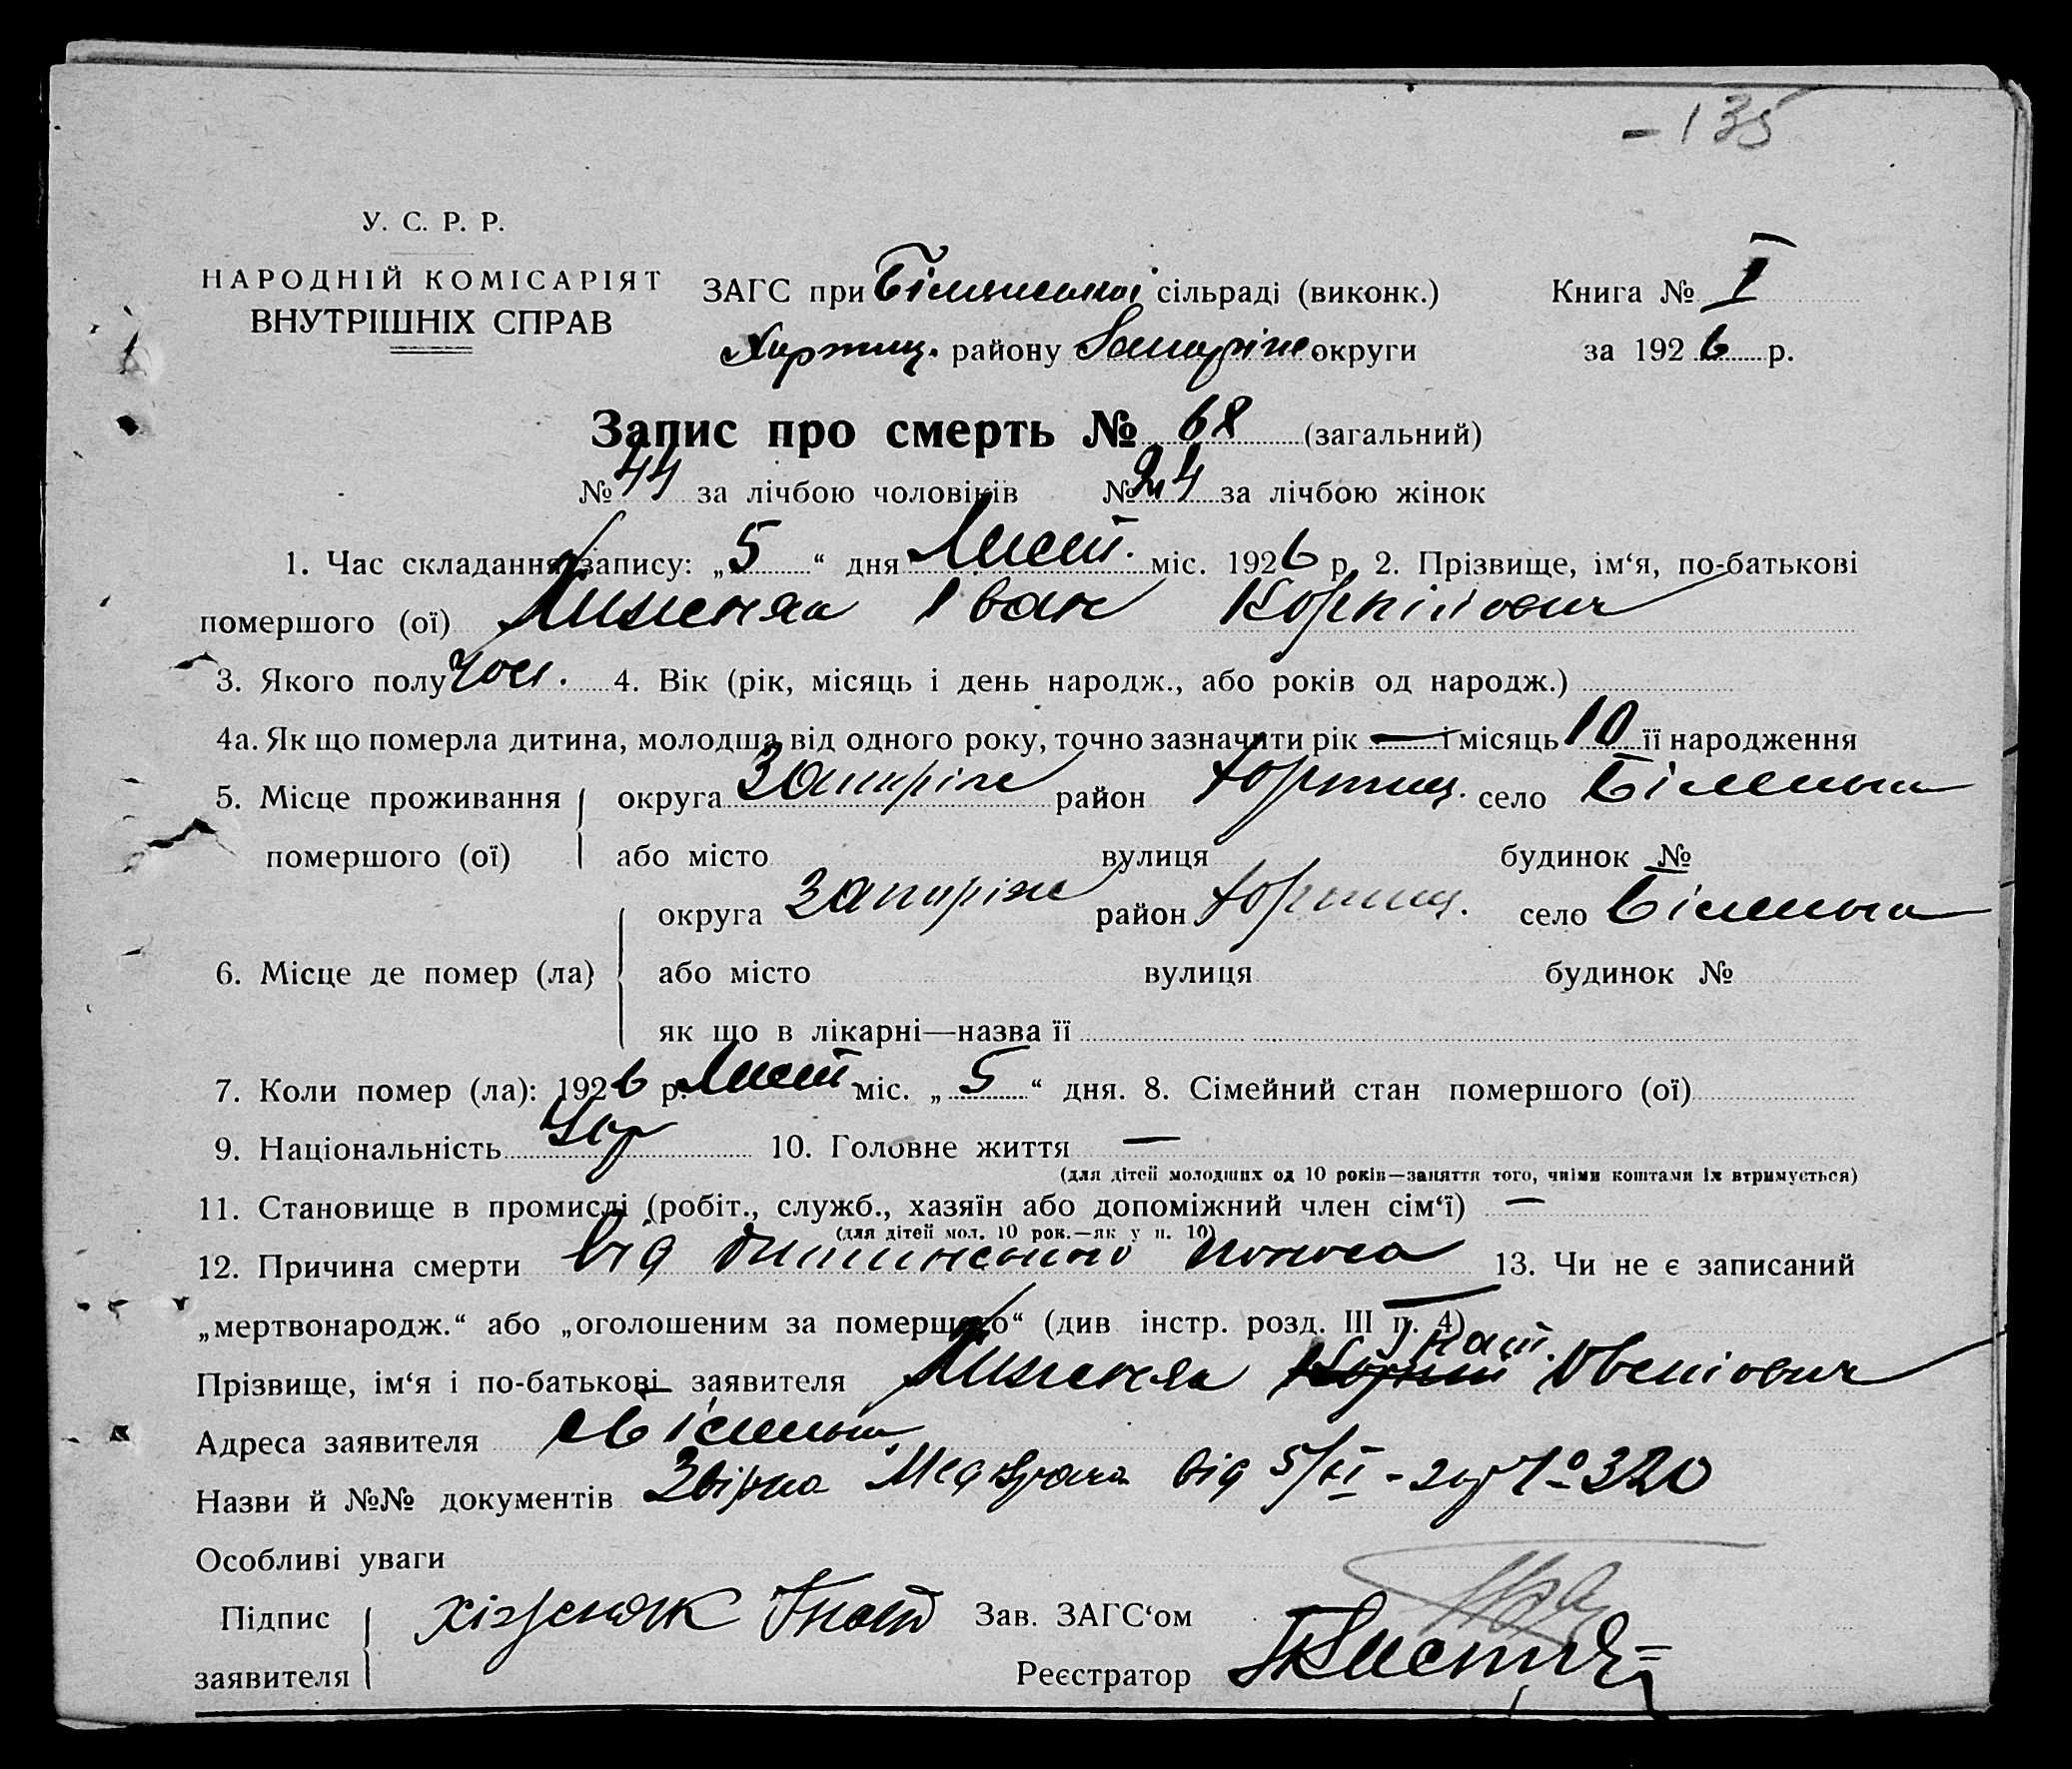 - 135
У. С. Р. Р.
НАРОДНІЙ КОМІСАРІЯТ
ВНУТРІШНІХ СПРАВ
ЗАГС при Біленської сільраді (виконк.)
Книга № I
Хортиц. району Запоріже округи
за 1926 р.
Запис про смерть № 68 (загальний)
№ 44 за лічбою чоловіків № 24 за лічбою жінок
1. Час складання запису: „5“ дня Лист. міс. 1926 р. 2. Прізвище, ім‘я, по-батькові
помершого (ої) Хижняк Іван Корнійович
3. Якого полу чол. 4. Вік (рік, місяць і день народж., або років од народж.)
4а. Як що померла дитина, молодша від одного року, точно зазначити рік — і місяць 10 її народження
5. Місце проживання округа Запоріже район Хортиц. село Біленька
помершого (ої) або місто вулиця будинок №
округа Запоріже район Хортиц. село Біленька
6. Місце де помер (ла) або місто вулиця будинок №
як що в лікарні—назва її
7. Коли помер (ла): 1926 р. Лист міс. „5“ дня. 8. Сімейний стан помершого (ої)
9. Національність Укр 10. Головне життя —
(для дітей молодших од 10 років—заняття того, чиїми коштами їх втримується)
11. Становище в промислі (робіт., служб., хазяїн або допоміжний член сім‘ї) —
(для дітей мол. 10 рок.—як у п. 10)
12. Причина смерти від поноса 13. Чи не є записаний
„мертвонародж.“ або „оголошеним за помершого“ (див інстр. розд. III п. 4) —
Гнат.
Прізвище, ім‘я і по-батькові заявителя Хижняк Корній
Адреса заявителя с Біленька
Назви й №№ документів від 5/XI - 26р № 320
Особливі уваги
Підпис Хізжняк Гнат Зав. ЗАГС‘ом
заявителя Реєстратор